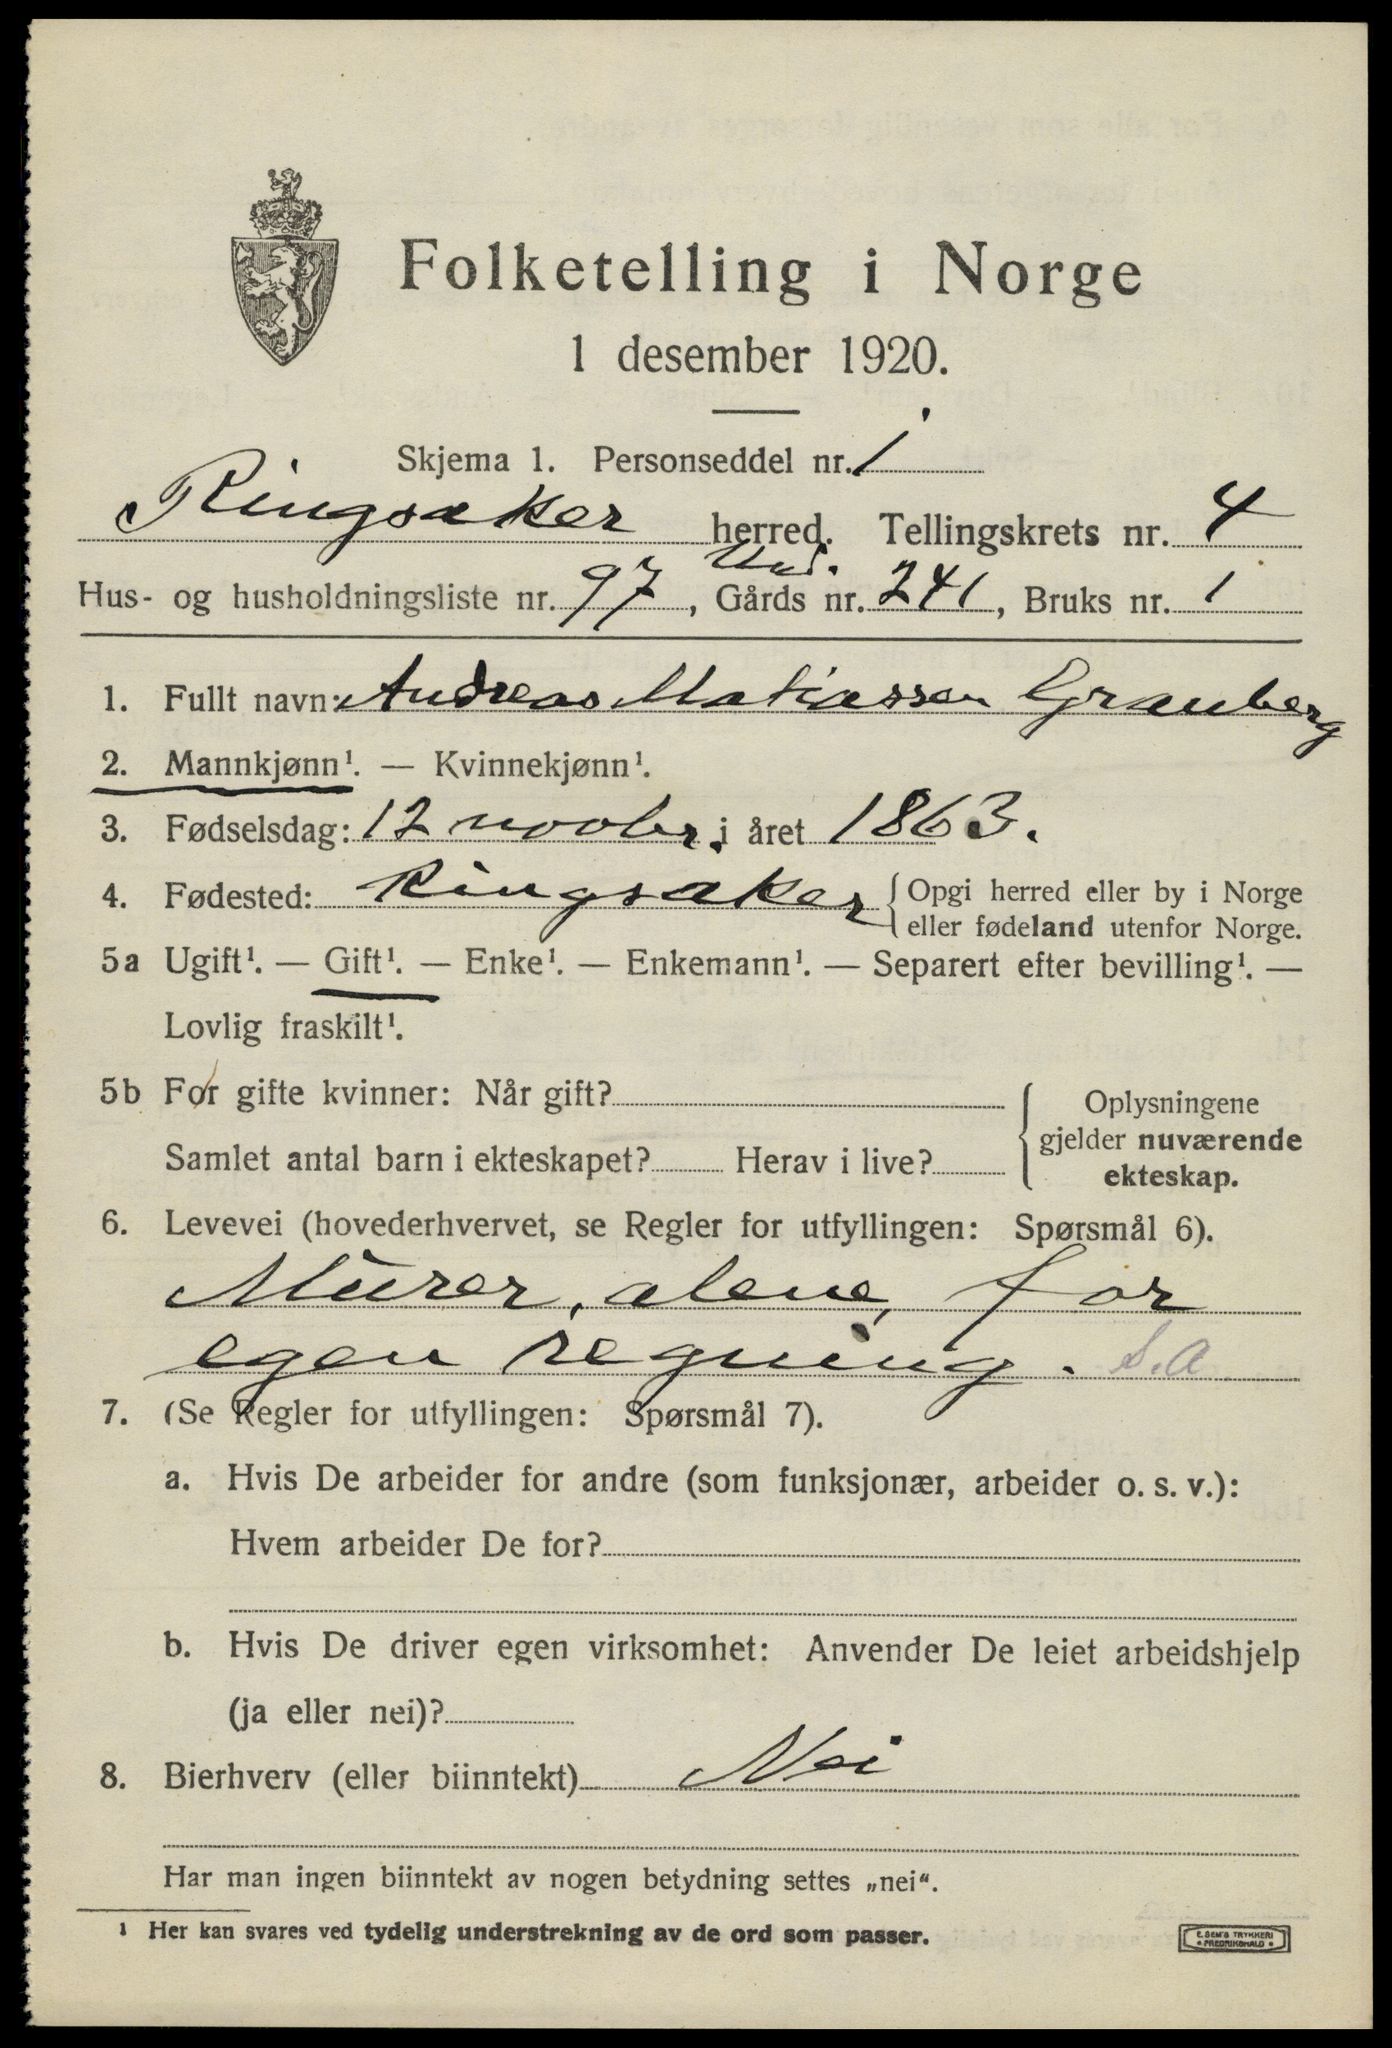 Folketelling i Norge
1 desember 1920.
Skjema 1. Personseddel nr. 1
Ringsaker herred. Tellingskrets nr. 4
Und.
Hus- og husholdningsliste nr. 97, Gårds nr. 241, Bruks nr. 1
1. Fullt navn: Andreas Matiassen Granberg
2. Mannkjønn¹. — Kvinnekjønn¹.
3. Fødselsdag: 12 novbr. i året 1863.
4. Fødested: Ringsaker { Opgi herred eller by i Norge
eller fødeland utenfor Norge.
5a Ugift¹. — Gift¹. — Enke¹. — Enkemann¹. — Separert efter bevilling¹. —
Lovlig fraskilt¹.
5b For gifte kvinner: Når gift?
Samlet antal barn i ekteskapet? Herav i live?
{ Oplysningene
gjelder nuværende
ekteskap.
6. Levevei (hovederhvervet, se Regler for utfyllingen: Spørsmål 6).
Murer, alene, for
egen regning. S.A
7. (Se Regler for utfyllingen: Spørsmål 7).
a. Hvis De arbeider for andre (som funksjonær, arbeider o. s. v.):
Hvem arbeider De for?
b. Hvis De driver egen virksomhet: Anvender De leiet arbeidshjelp
(ja eller nei)?
8. Bierhverv (eller biinntekt) Nei
Har man ingen biinntekt av nogen betydning settes „nei“.
¹ Her kan svares ved tydelig understrekning av de ord som passer.
E. SEM'S TRYKKERI
• FREDRIKSHALD •